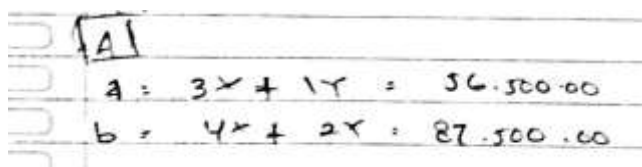 A
a : 3x + 1y = 56.500.00
b = 4x + 2y : 87.500.00